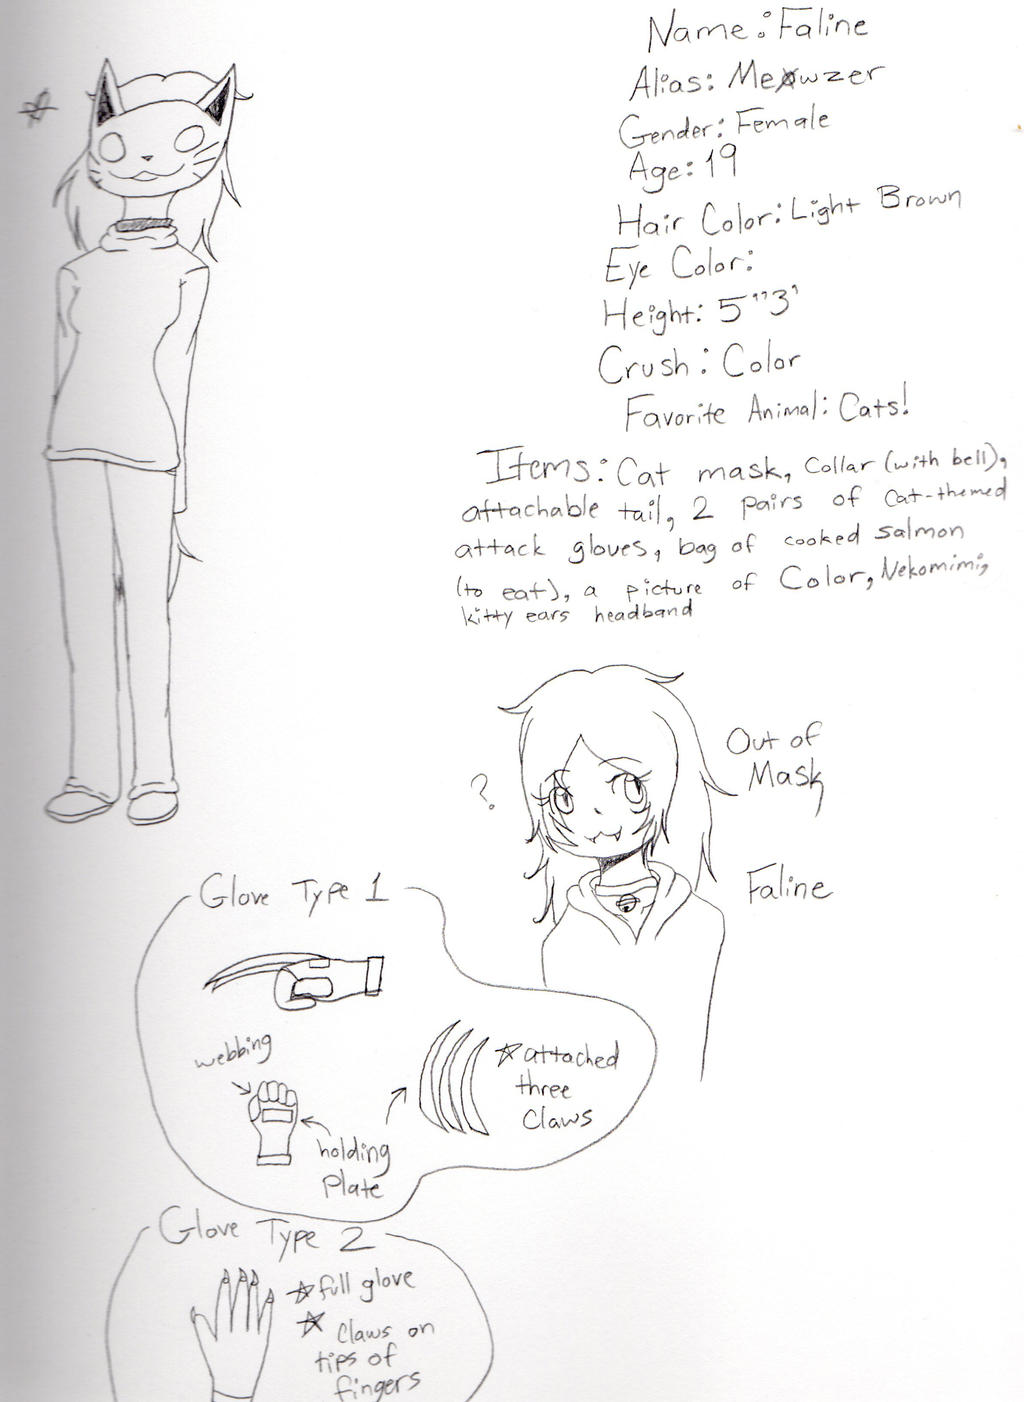 Name: Faline
Alias: Meowzer
Gender: Female
Age: 19
Hair Color: Light Brown
Eye Color:
Height: 5"3'
Crush: Color
Favorite Animal: Cats!
Items: Cat mask, Collar (with bell),
attachable tail, 2 pairs of cat-themed
attack gloves, bag of cooked salmon
(to eat), a picture of Color, Nekomimi,
kitty ears headband
Out of
Mask
?
Faline
Glove Type 1
webbing
attached
three
claws
holding
plate
Glove Type 2
full glove
claws on
tips of
fingers